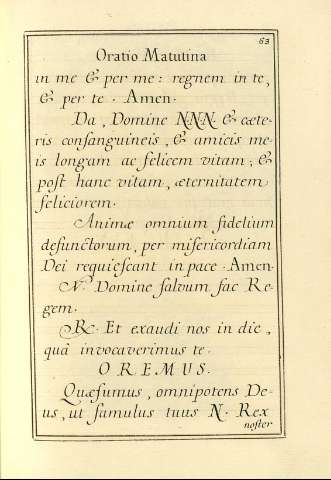 63
Oratio Matutina
in me & per me: regnem in te,
& per te. Amen.
Da, Domine NNN. & cæte-
ris consanguineis, & amicis me-
is longam ac felicem vitam; &
post hanc vitam, æternitatem
feliciorem.
Animæ omnium fidelium
defunctorum, per misericordiam
Dei requiescant in pace. Amen.
V. Domine salvum fac Re-
gem.
R. Et exaudi nos in die,
quâ invocaverimus te.
OREMUS.
Quæsumus, omnipotens De-
us, ut famulus tuus N. Rex
noster